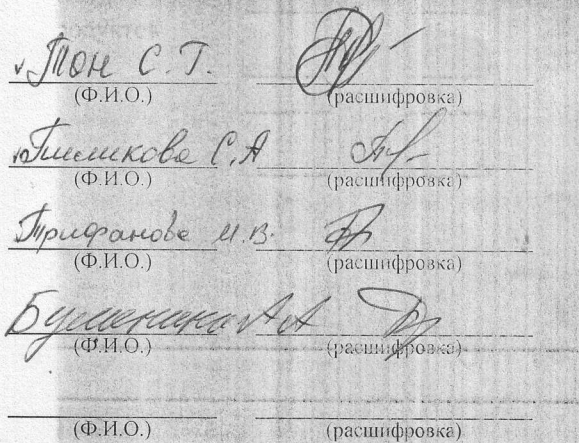 Тон С. Т.
(Ф.И.О.) (расшифровка)
С.А
(Ф.И.О.) (расшифровка)
Трифанова М.В.
(Ф.И.О.) (расшифровка)
А А
(Ф.И.О.) (расшифровка)
(Ф.И.О.) (расшифровка)